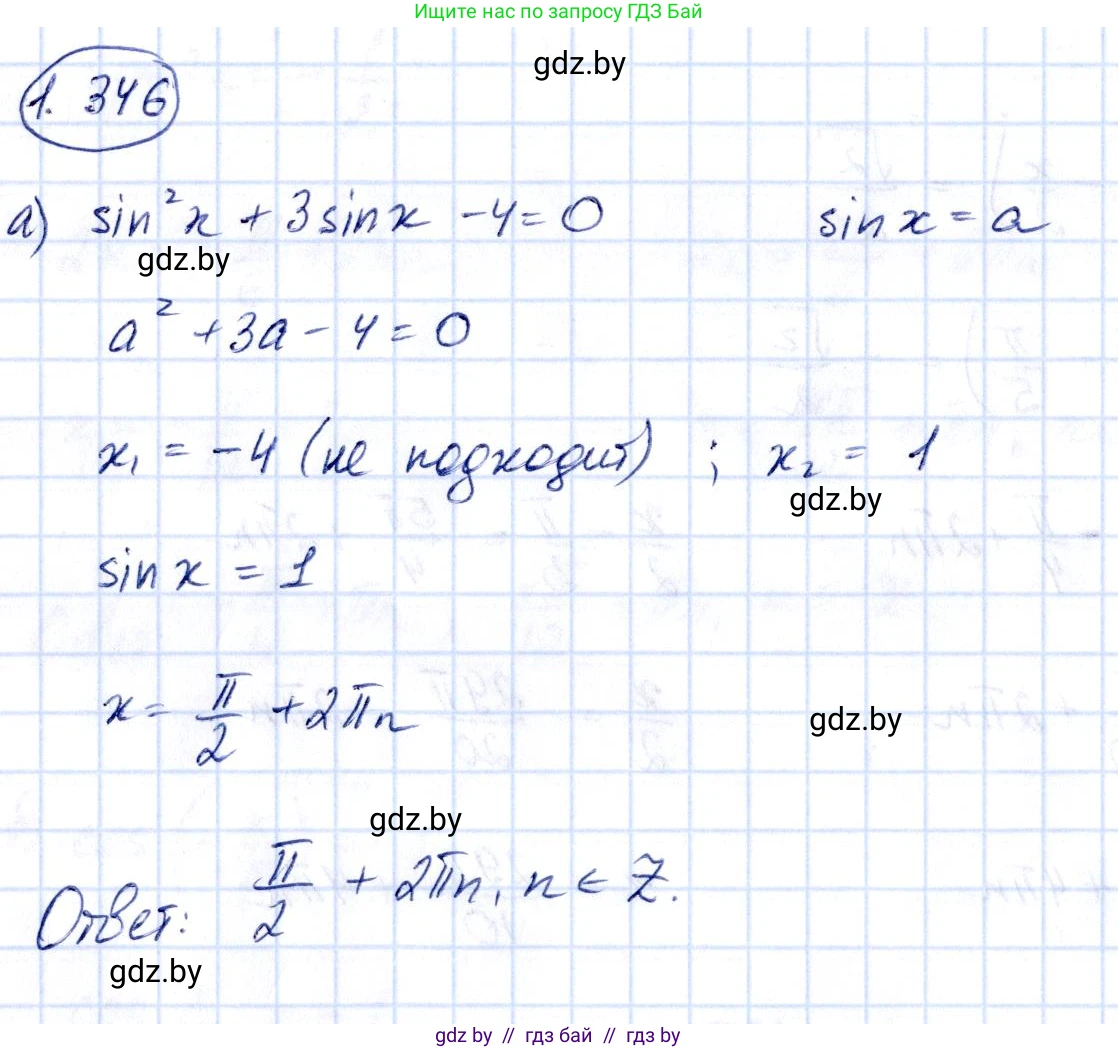 Ищите нас по запросу ГДЗ Бай
gdz.by
1. 346
а) sin²x + 3sinx - 4 = 0 sin x = a
gdz.by
a² + 3a - 4 = 0
x₁ = -4 (не подходит) ; x₂ = 1
gdz.by
sin x = 1
x = π/2 + 2πn
gdz.by
gdz.by
Ответ: π/2 + 2πn, n ∈ Z.
gdz.by
gdz by // гдз бай // гдз by